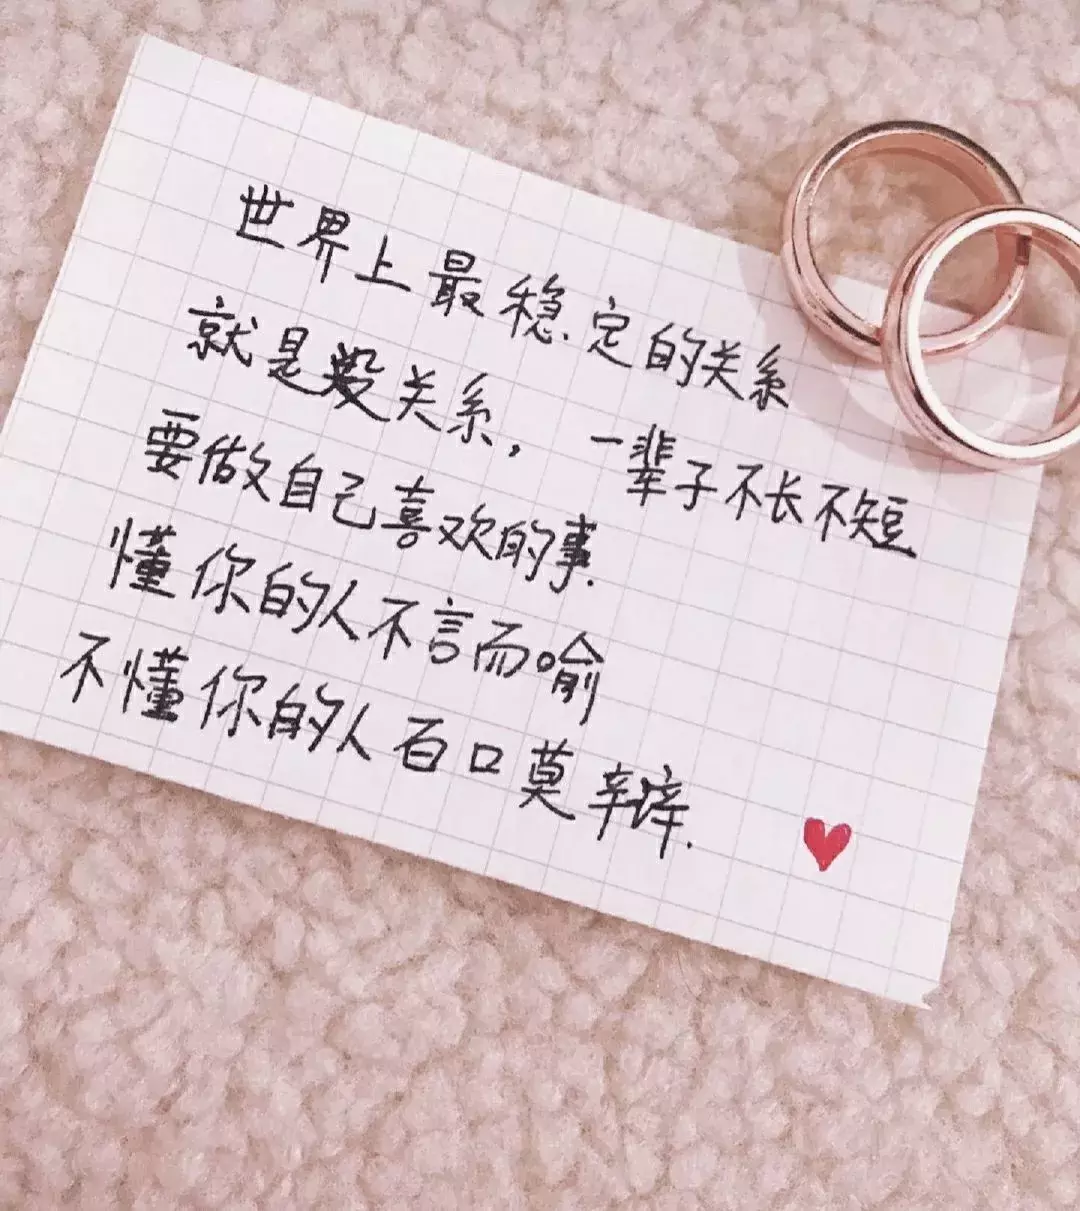 世界上最稳定的关系
就是没关系，一辈子不长不短
要做自己喜欢的事.
懂你的人不言而喻
不懂你的人百口莫辩.